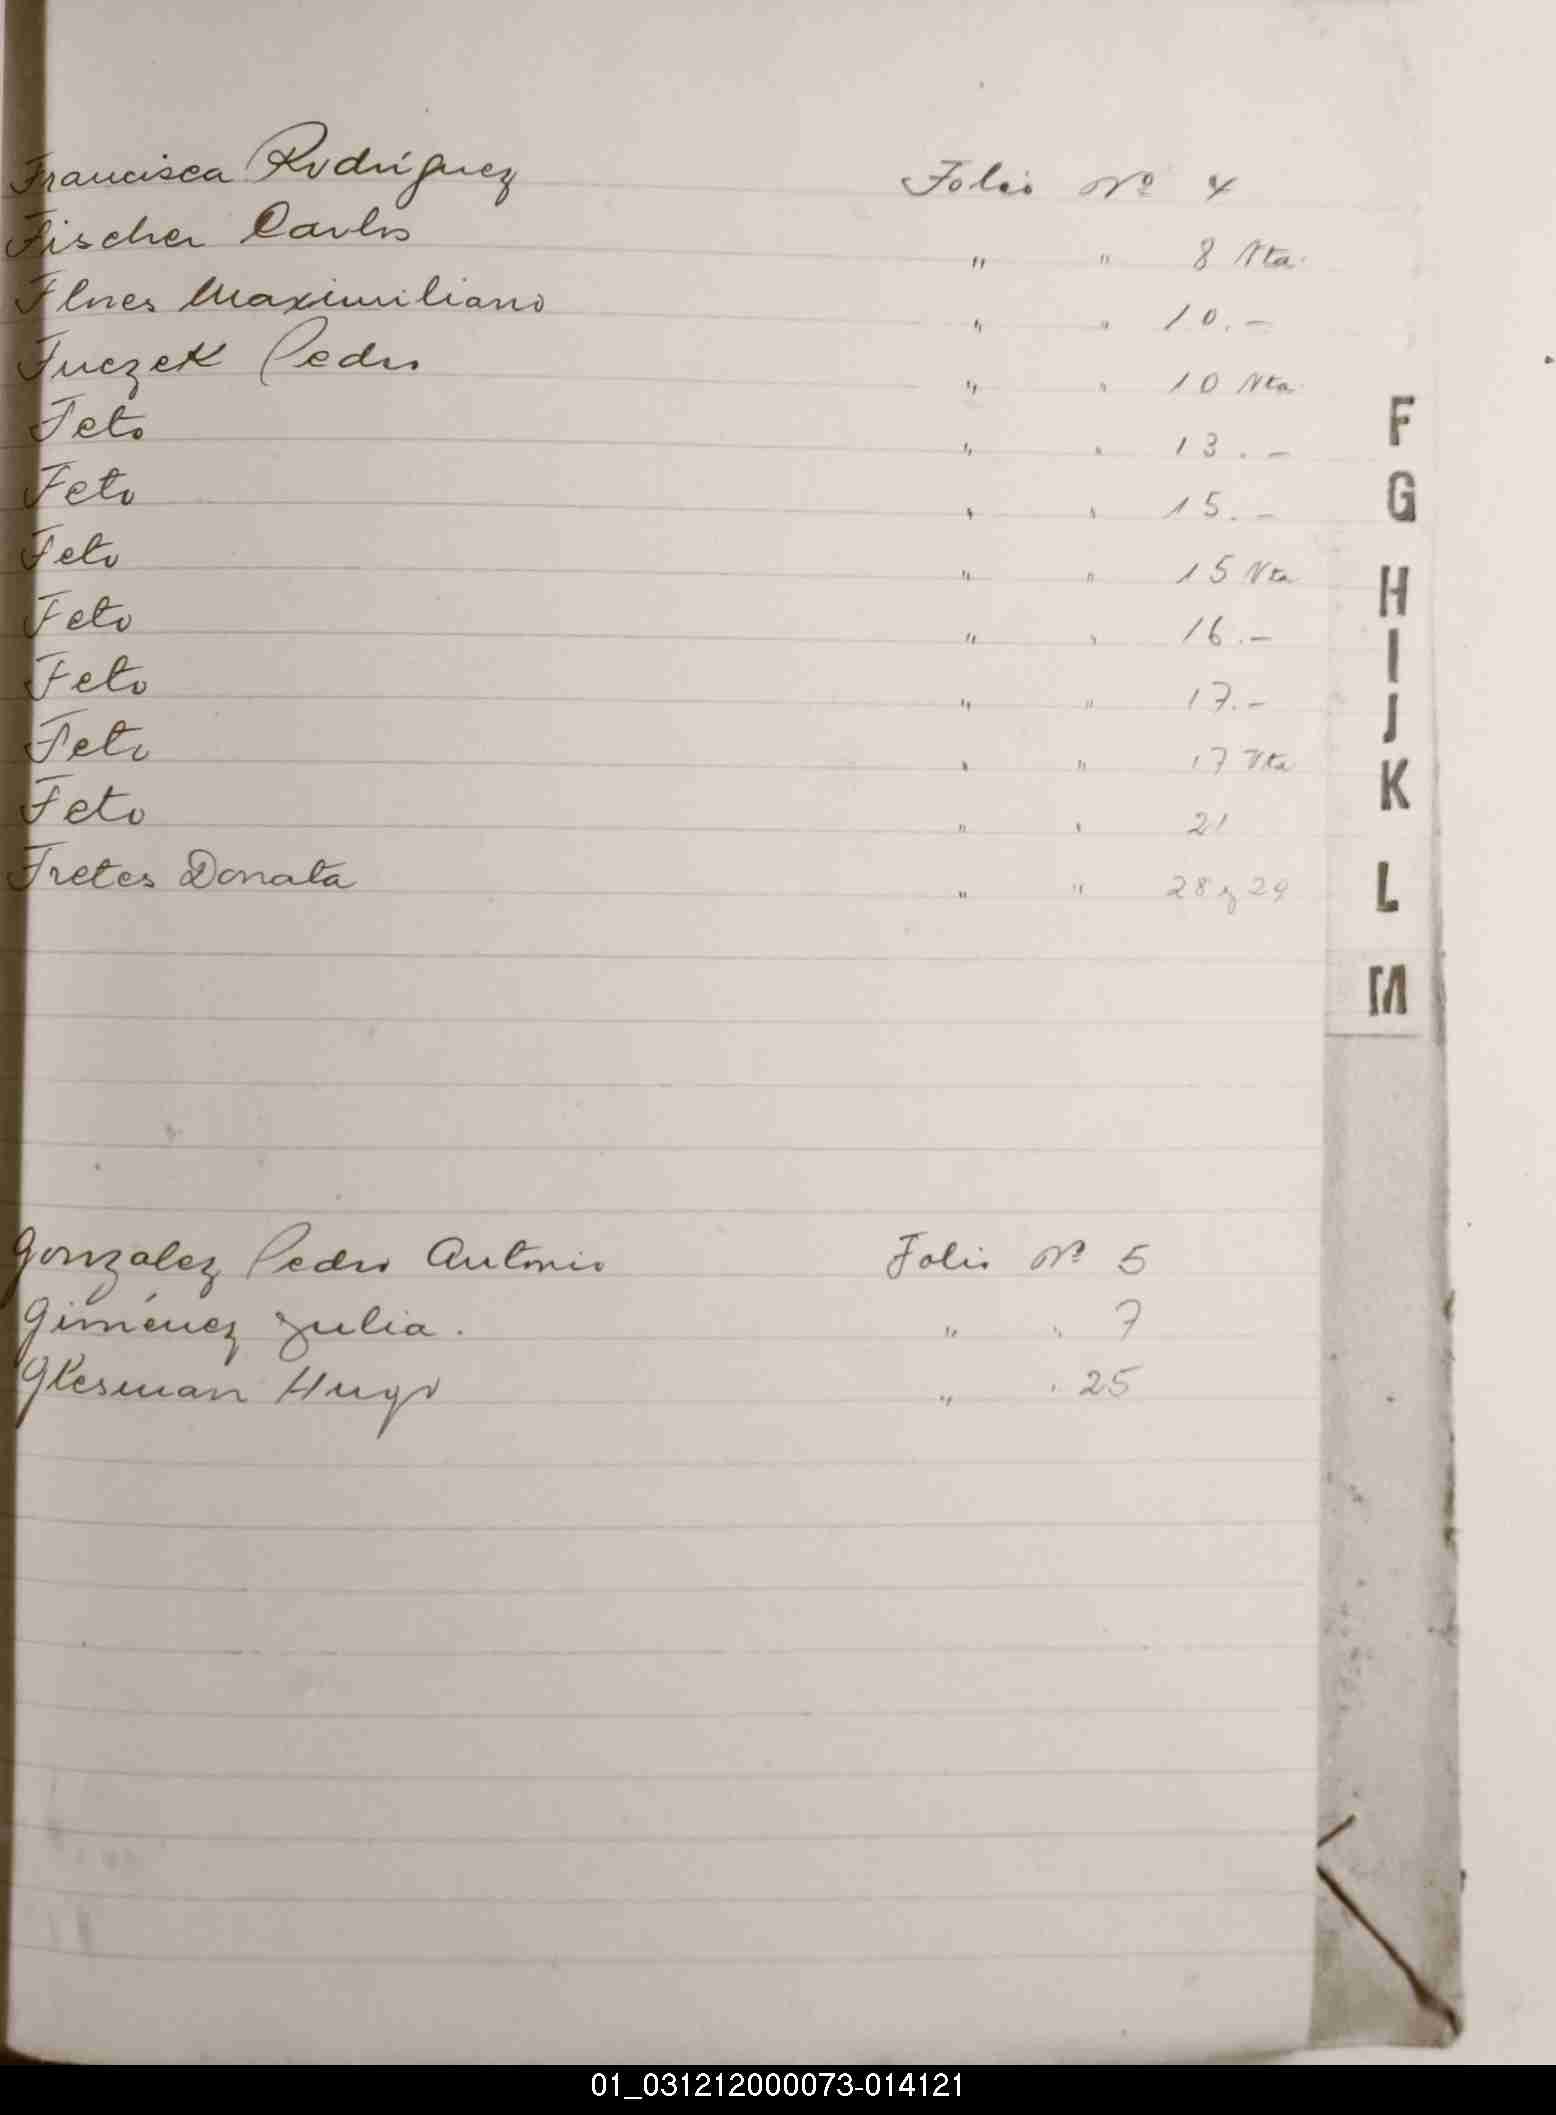 Francisca Rodríguez Folio Nº 4
Fischer Carlos " " 8 Vta.
Flores Maximiliano " " 10.-
Fuczek Pedro " " 10 Vta.
Feto " " 13.-
Feto " " 15.-
Feto " " 15 Vta
Feto " " 16.-
Feto " " 17.-
Feto " " 17 Vta
Feto " " 21
Fretes Donata " " 28 y 29
Gonzalez Pedro Antonio Folio Nº 5
Giménez Julia. " " 7
Glesman Hugo " " 25
F
G
H
I
J
K
L
M
01_031212000073-014121